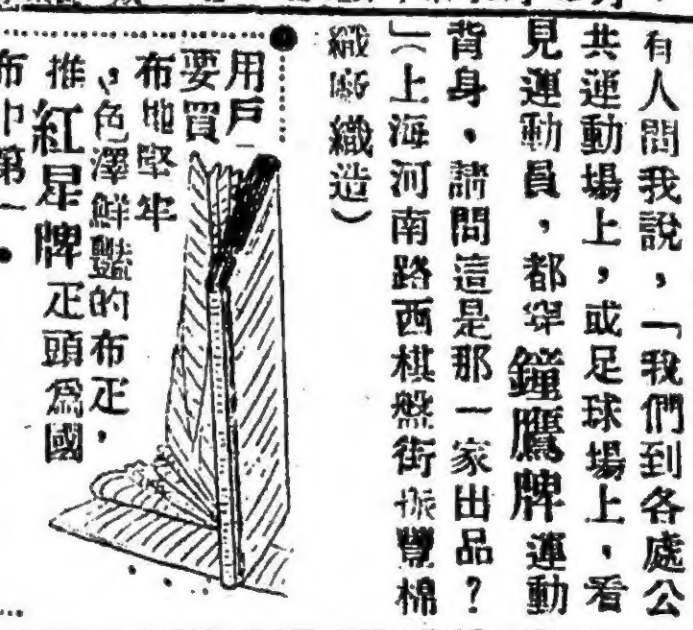 有人問我說,「我們到各處公
共運動場上,或足球場上,看
見運動員,都穿鐘鷹牌運動
背身,請問這是那一家出品?
」(上海河南路西棋盤街振豐棉
織廠織造)
用戶
要買
布地堅牢
,色澤鮮豔的布疋,
推紅星牌疋頭爲國
布中第一。